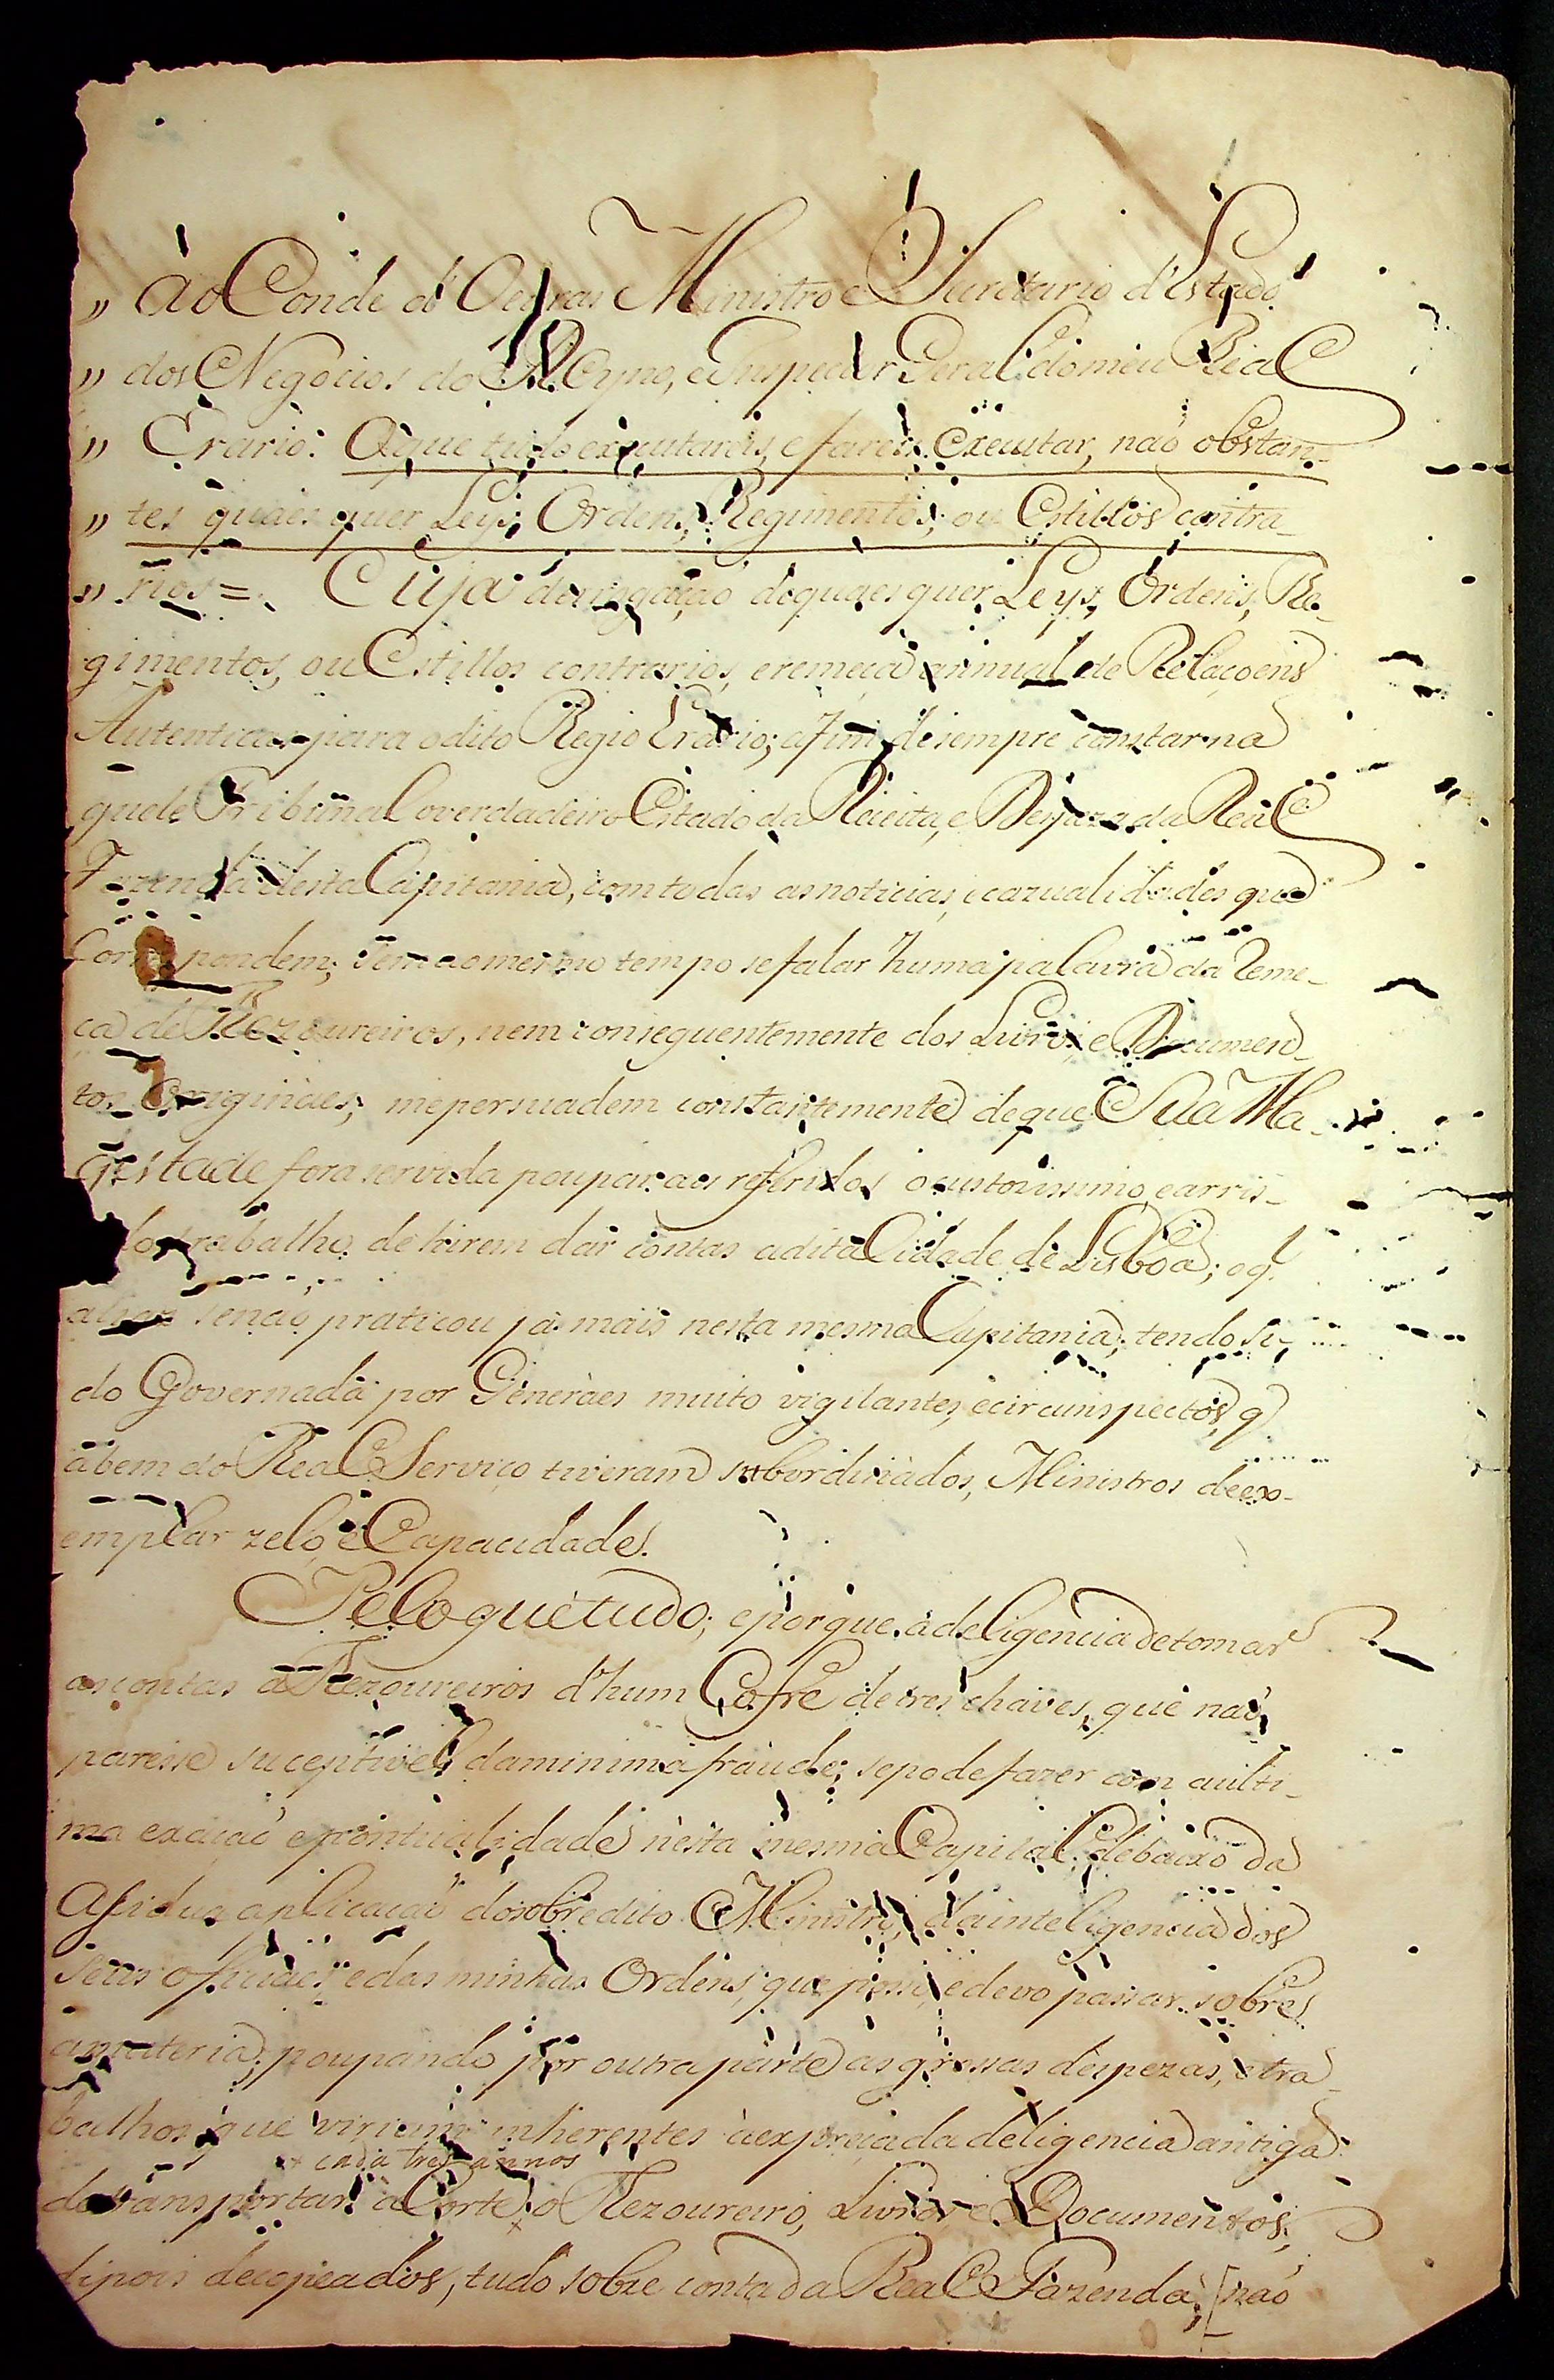 " ao Conde d' Oeyras Ministro e Secretario d'Estado
" dos Negocios do Reyno, e Inspector Geral do meu Real
" Erario. O que tudo executareis, e fareis executar, naõ obstan_
" tes quaes quer Leys, Ordens, Regimentos, ou Estillos contra_
" rios = Cuja derrogaçaõ de quaes quer Leys, Ordens, Re_
gimentos, ou Estillos contrarios, e remeça annual de Relaçoens
Autenticas para o dito Regio Erario; afim de sempre constar na
quele Tribunal o verdadeiro Estado da Receita, e Despeza da Real
Fazenda desta Capitania, com todas as noticias, e cazualidades que
Correspondem; sem ao mesmo tempo se falar huma palavra da Reme_
ça de Thezoureiros, nem conseguentemente dos Livros, e Documen_
tos Originaes; me persuadem constantemente de que Sua Ma_
gestade fora servida poupar aos referidos o custosissimo, e arris_
do trabalho de hirem dar contas a dita Cidade de Lisboa; o q.
aliaz se naõ praticou já mais nesta mesma Capitania; tendo si_
do Governada por Generaes muito vigilantes, e circunspectos, q
a bem do Real Serviço tiveram subordinados, Ministros de ex_
emplar zelo, e Capacidade.
Pelo que tudo; e porque a deligencia de tomar
as contas a Thezoureiros d'hum Cofre de tres chaves, que naõ
paresse suceptivel da minima fraude; se pode fazer com a ulti_
ma exacaõ e pontualidade nesta mesma Capital, debaixo da
Asidua aplicacaõ do sobredito Ministro, da inteligencia dos
seus officiaes, e das minhas Ordens, que posso, e devo passar sobre
a materia; poupando por outra parte as grossas despezas, e tra_
balhos que viriam inherentes á expreçada deligencia antiga
x cada tres annos
de transportar á Corte x o Thezoureiro, Livros, e Documentos,
dipois de copeados, tudo sobre conta da Real Fazenda; [naõ